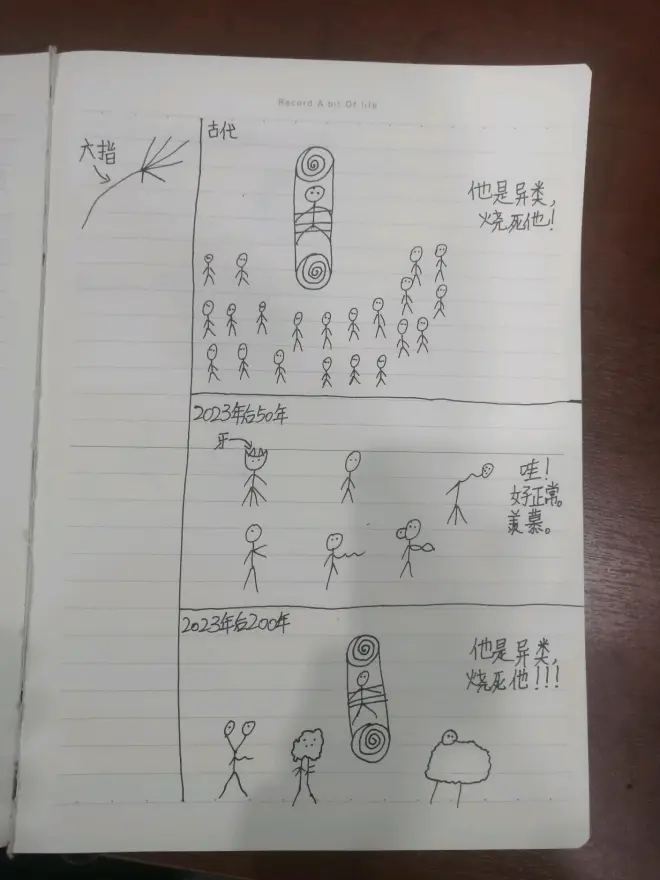 Record A bit Of life
六指
古代
他是异类,
烧死他!
2023年后50年
牙
哇!
好正常。
羡慕。
2023年后200年
他是异类,
烧死他!!!